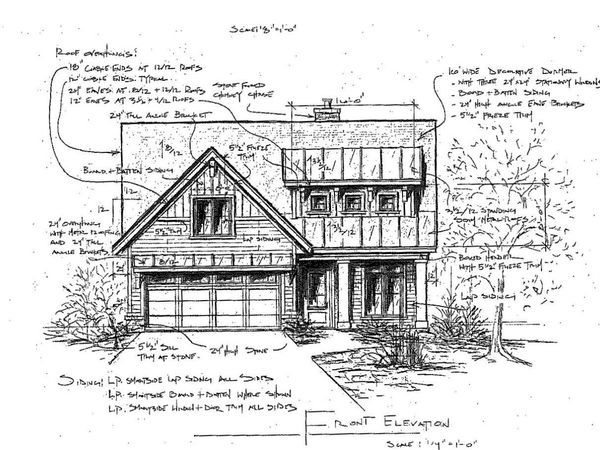 SCALE: 1/8" = 1'-0"
ROOF OVERHANGS:
18" GABLE ENDS AT 12/12 ROOFS
12" GABLE ENDS TYPICAL
24" EAVES AT 8/12 + 12/12 ROOFS
12" EAVES AT 3 1/2 + 4/12 ROOFS
24" TALL ANGLE BRACKET
STONE FACED
CHIMNEY CHASE
16'-0"
16'0" WIDE DECORATIVE DORMER
- WITH THREE 24"x24" STATIONARY WINDOWS
- BOARD + BATTEN SIDING
- 24" HIGH ANGLE EAVE BRACKETS
- 5 1/2" FRIEZE TRIM
8/12
5 1/2" FRIEZE
TRIM
3 1/2
BOARD + BATTEN SIDING
12
12
24" OVERHANG
WITH METAL ROOFING
AND 24" TALL
ANGLE BRACKETS
5 1/2" TRIM
LAP SIDING
3 1/2
3 1/2/12 STANDING
SEAM METAL ROOFS
8/12
BOXED HEADER
WITH 5 1/2" FRIEZE TRIM
LAP SIDING
5 1/2" SILL
TRIM AT STONE
24" HIGH STONE
SIDING: L.P. SMARTSIDE LAP SIDING ALL SIDES
L.P. SMARTSIDE BOARD + BATTEN WHERE SHOWN
L.P. SMARTSIDE WINDOW + DOOR TRIM ALL SIDES
FRONT ELEVATION
SCALE: 1/4" = 1'-0"